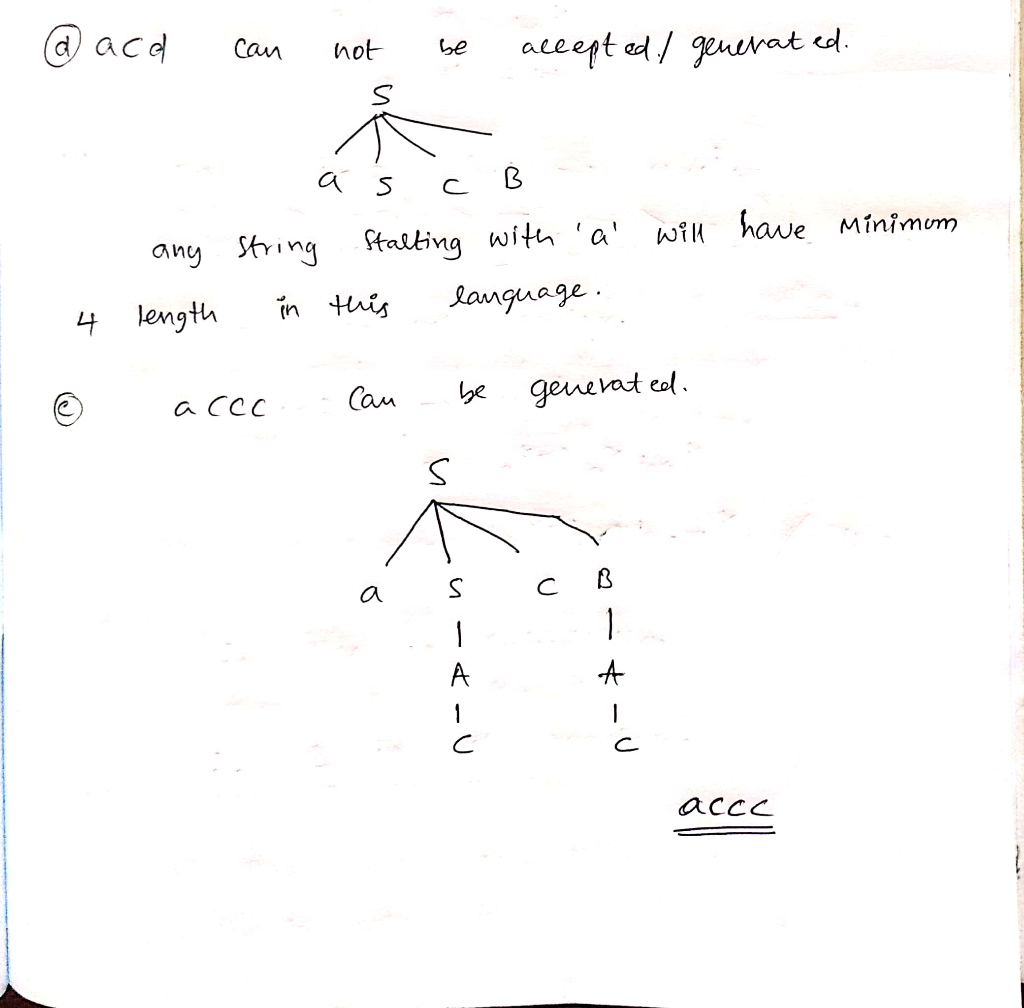 ⓓ acd can not be accepted / generated.
S
a S c B
any string starting with 'a' will have Minimum
4 length in this language.
ⓔ accc can be generated.
S
a S c B
A A
c c
accc